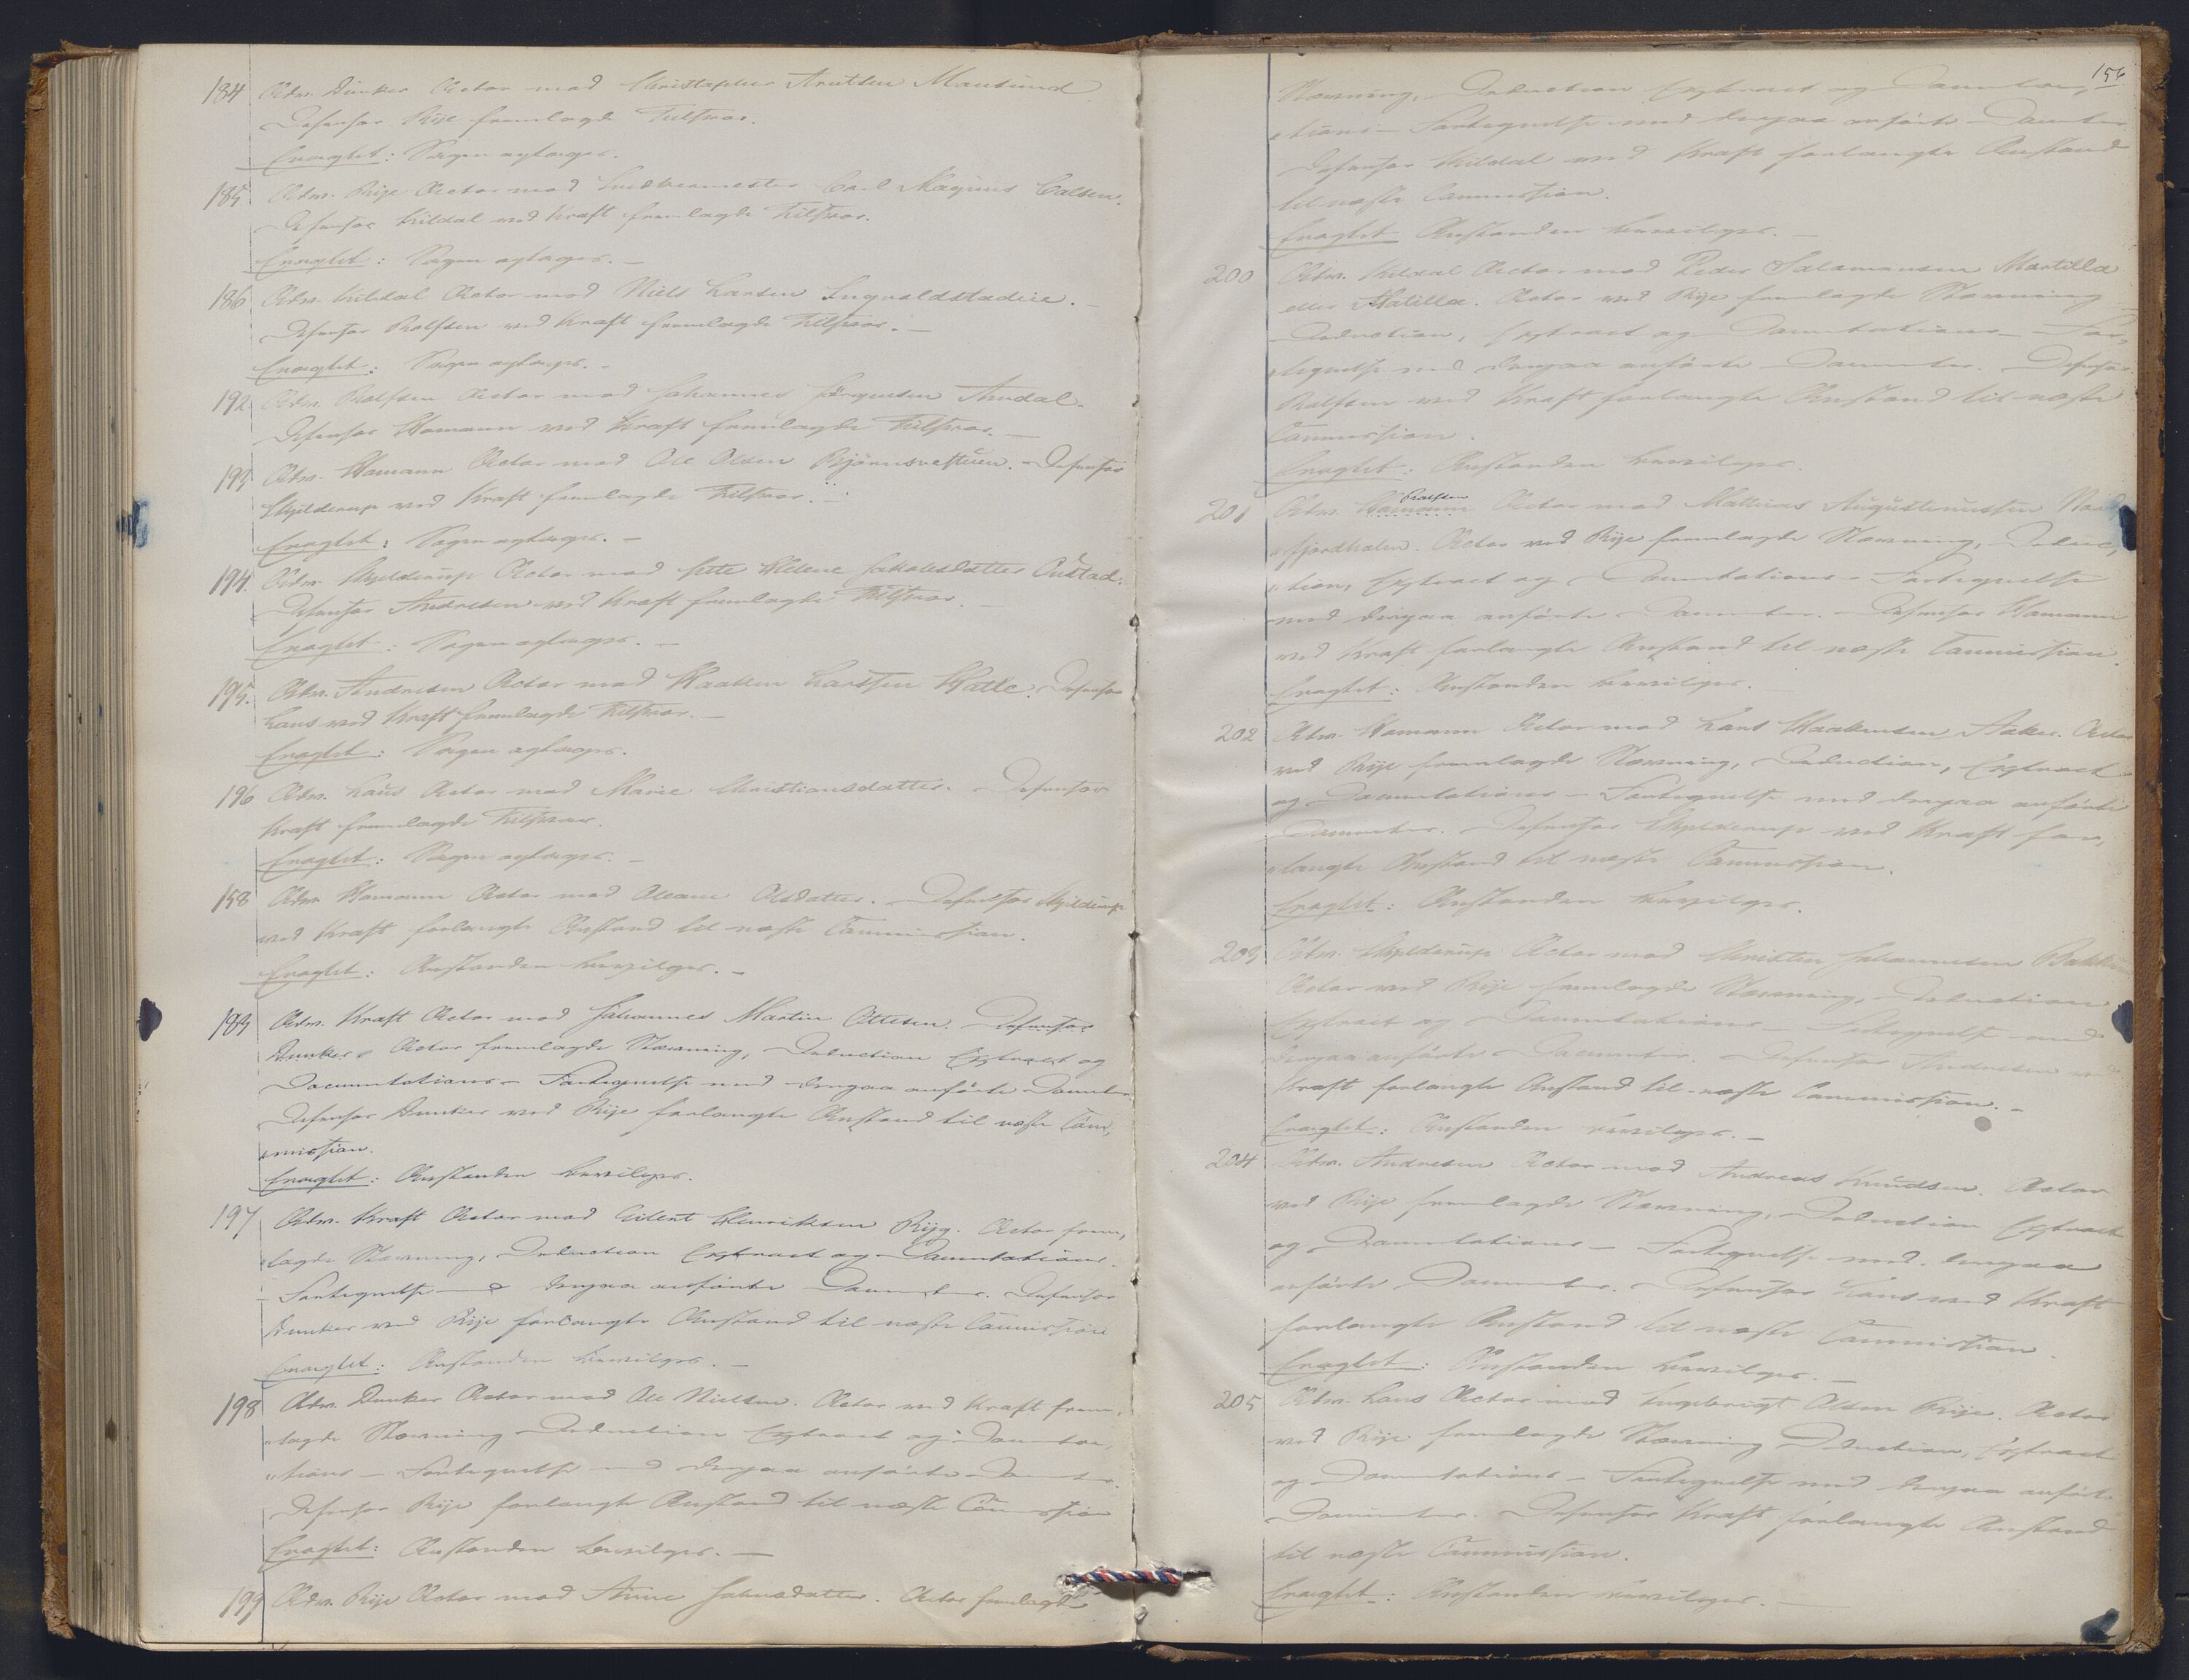 184 Adv. Dunker Actor mod Christopher Arntsen Mausund
Defensor Rije fremlagde Tilsvar.
Eragtet: Sagen optages.
185 Adv. Rije Actor mod Carl Magnus Carlsen.
Defensor Kildal ved Kraft fremlagde Tilsvar.
Eragtet: Sagen optages. –
186 Adv. Kildal Actor mod Niels Larsen Ingvaldstadeie. –
Defensor Rolfsen ved Kraft fremlagde Tilsvar. –
Eragtet: Sagen optages. –
192 Adv. Rolfsen Actor mod Johannes Jörgensen Amdal.
Defensor Hamann ved Kraft fremlagde Tilsvar. –
193 Adv. Hamann Actor mod Ole Olsen Björnsvestuen. – Defensor
Skjelderup ved Kraft fremlagde Tilsvar. –
Eragtet: Sagen optages. –
194. Adv. Skjelderup Actor mod Helene Jakobsdatter
Defensor Andresen ved Kraft fremlagde Tilsvar. –
Eragtet: Sagen optages. –
195. Adv. Andresen Actor mod Haaken Larsen Hatle. Defensor
Laus ved Kraft fremlagde Tilsvar. –
Eragtet: Sagen optages.
196 Adv. Laus Actor mod Marie Christiansdatter. – Defensor
Kraft fremlagde Tilsvar.
Eragtet: Sagen optages. –
158 Adv. Hamann Actor mod Oleane Olsdatter. – Defensor Skjelderup
ved Kraft forlangte Anstand til næste Commission.
Eragtet: Anstanden bevilges. –
189 Adv. Kraft Actor mod Johannes Martin Ottesen. Defensor
Dunker. Actor fremlagde Stævning, Deduction Extract og
Documentations – Fortegnelse med derpaa anførte Documenter
Defensor Dunker ved Rije forlangte Anstand til næste Com,
„mission.
Eragtet: Anstanden bevilges.
197 Adv. Kraft Actor mod Eilert Henriksen Ryg. Actor frem,
„lagde Stævning, Deduction Extract og Documentations
– Fortegnelse med derpaa anførte Documenter. Defensor
Dunker ved Rije forlangte Anstand til næste Commission
Eragtet: Anstanden bevilges. –
198 Adv. Dunker Actor mod Ole Nielsen. Actor ved Kraft frem,
„lagde Stævning Deduction Extract og Documenta,
„tions – Fortegnelse med derpaa anførte Documenter.
Defensor Rije forlangte Anstand til næste Commission
Eragtet: Anstanden bevilges. –
199 Adv. Rije Actor mod Anne Johnsdatter. Actor fremlagde
156
Stævning, Deduction Extract og Documenta,
„tions – Fortegnelse med derpaa anførte Documenter
Defensor Kildal ved Kraft forlangte Anstand
til næste Commission.
Eragtet Anstanden bevilges. –
200 Adv. Kildal Actor mod Peder Salamonsen Martilla
eller Matilla. Actor ved Rije fremlagde Stævning
Deduction, Extract og Documentations – For,
„tegnelse med derpaa anførte Documenter. Defensor
Rolfsen ved Kraft forlangte Anstand til næste
Commission.
Eragtet: Anstanden bevilges.
201 Adv. Hamann Rolfsen Actor mod Mathias Augustinussen
„fjordhalen. Actor ved Rije fremlagde Stævning, Deduc,
„tion, Extract og Documentations – Fortegnelse
med derpaa anførte Documenter. – Defensor Hamann
ved Kraft forlangte Anstand til næste Commission.
Eragtet: Anstanden bevilges.
202 Adv. Hamann Actor mod Lars Haakensen Aaker. Actor
ved Rije fremlagde Stævning, Deduction, Extract
og Documentations – Fortegnelse med derpaa anførte
Documenter. Defensor Skjelderup ved Kraft for,
„langte Anstand til næste Commission.
Eragtet: Anstanden bevilges.
203 Adv. Skjelderup Actor mod Christen Johannesen Bakken
Actor ved Rije fremlagde Stævning, Deduction
Extract og Documentations – Fortegnelse med
derpaa anførte Documenter. Defensor Andresen ved
Kraft forlangte Anstand til næste Commission. –
Eragtet: Anstanden bevilges. –
204 Adv. Andresen Actor mod Andreas Knudsen. Actor
ved Rije fremlagde Stævning, Deduction Extract
og Documentations – Fortegnelse med derpaa
anførte Documenter. Defensor Laus ved Kraft
forlangte Anstand til næste Commission.
Eragtet: Anstanden bevilges. –
205 Adv. Laus Actor mod Ingebrigt Olsen Rije. Actor
ved Rije fremlagde Stævning Deduction, Extract
og Documentations – Fortegnelse med derpaa anførte
Documenter. Defensor Kraft forlangte Anstand
til næste Commission.
Eragtet: Anstanden bevilges. –